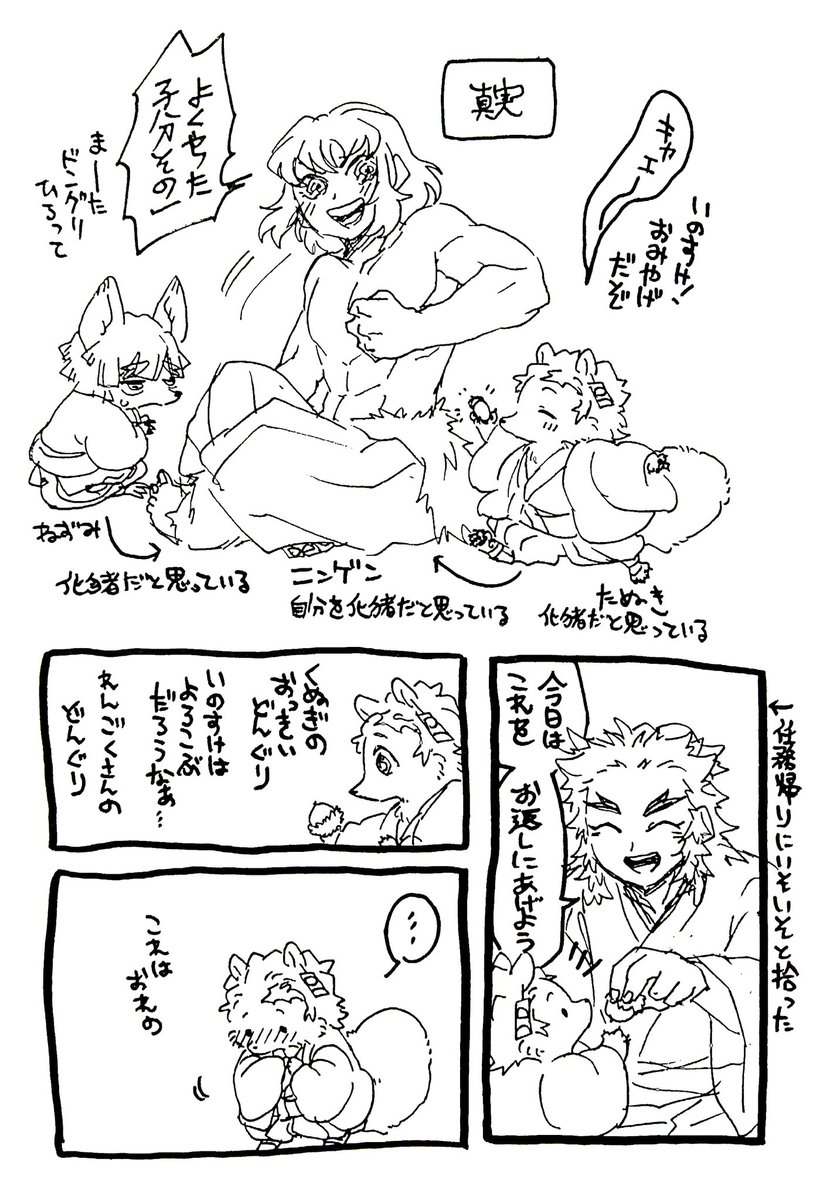 真実
キャエ
いのすけ!
おみやげ
だぞ
よくやった
子分その一
まーた
ドングリ
ひろって
ねずみ
化猪だと思っている
ニンゲン
自分を化猪だと思っている
たぬき
化猪だと思っている
←任務帰りにいそいそと拾った
今日は
これを
お返しにあげよう
くぬぎの
おっきい
どんぐり
いのすけは
よろこぶ
だろうなぁ…
れんごくさんの
どんぐり
…
これは
おれの